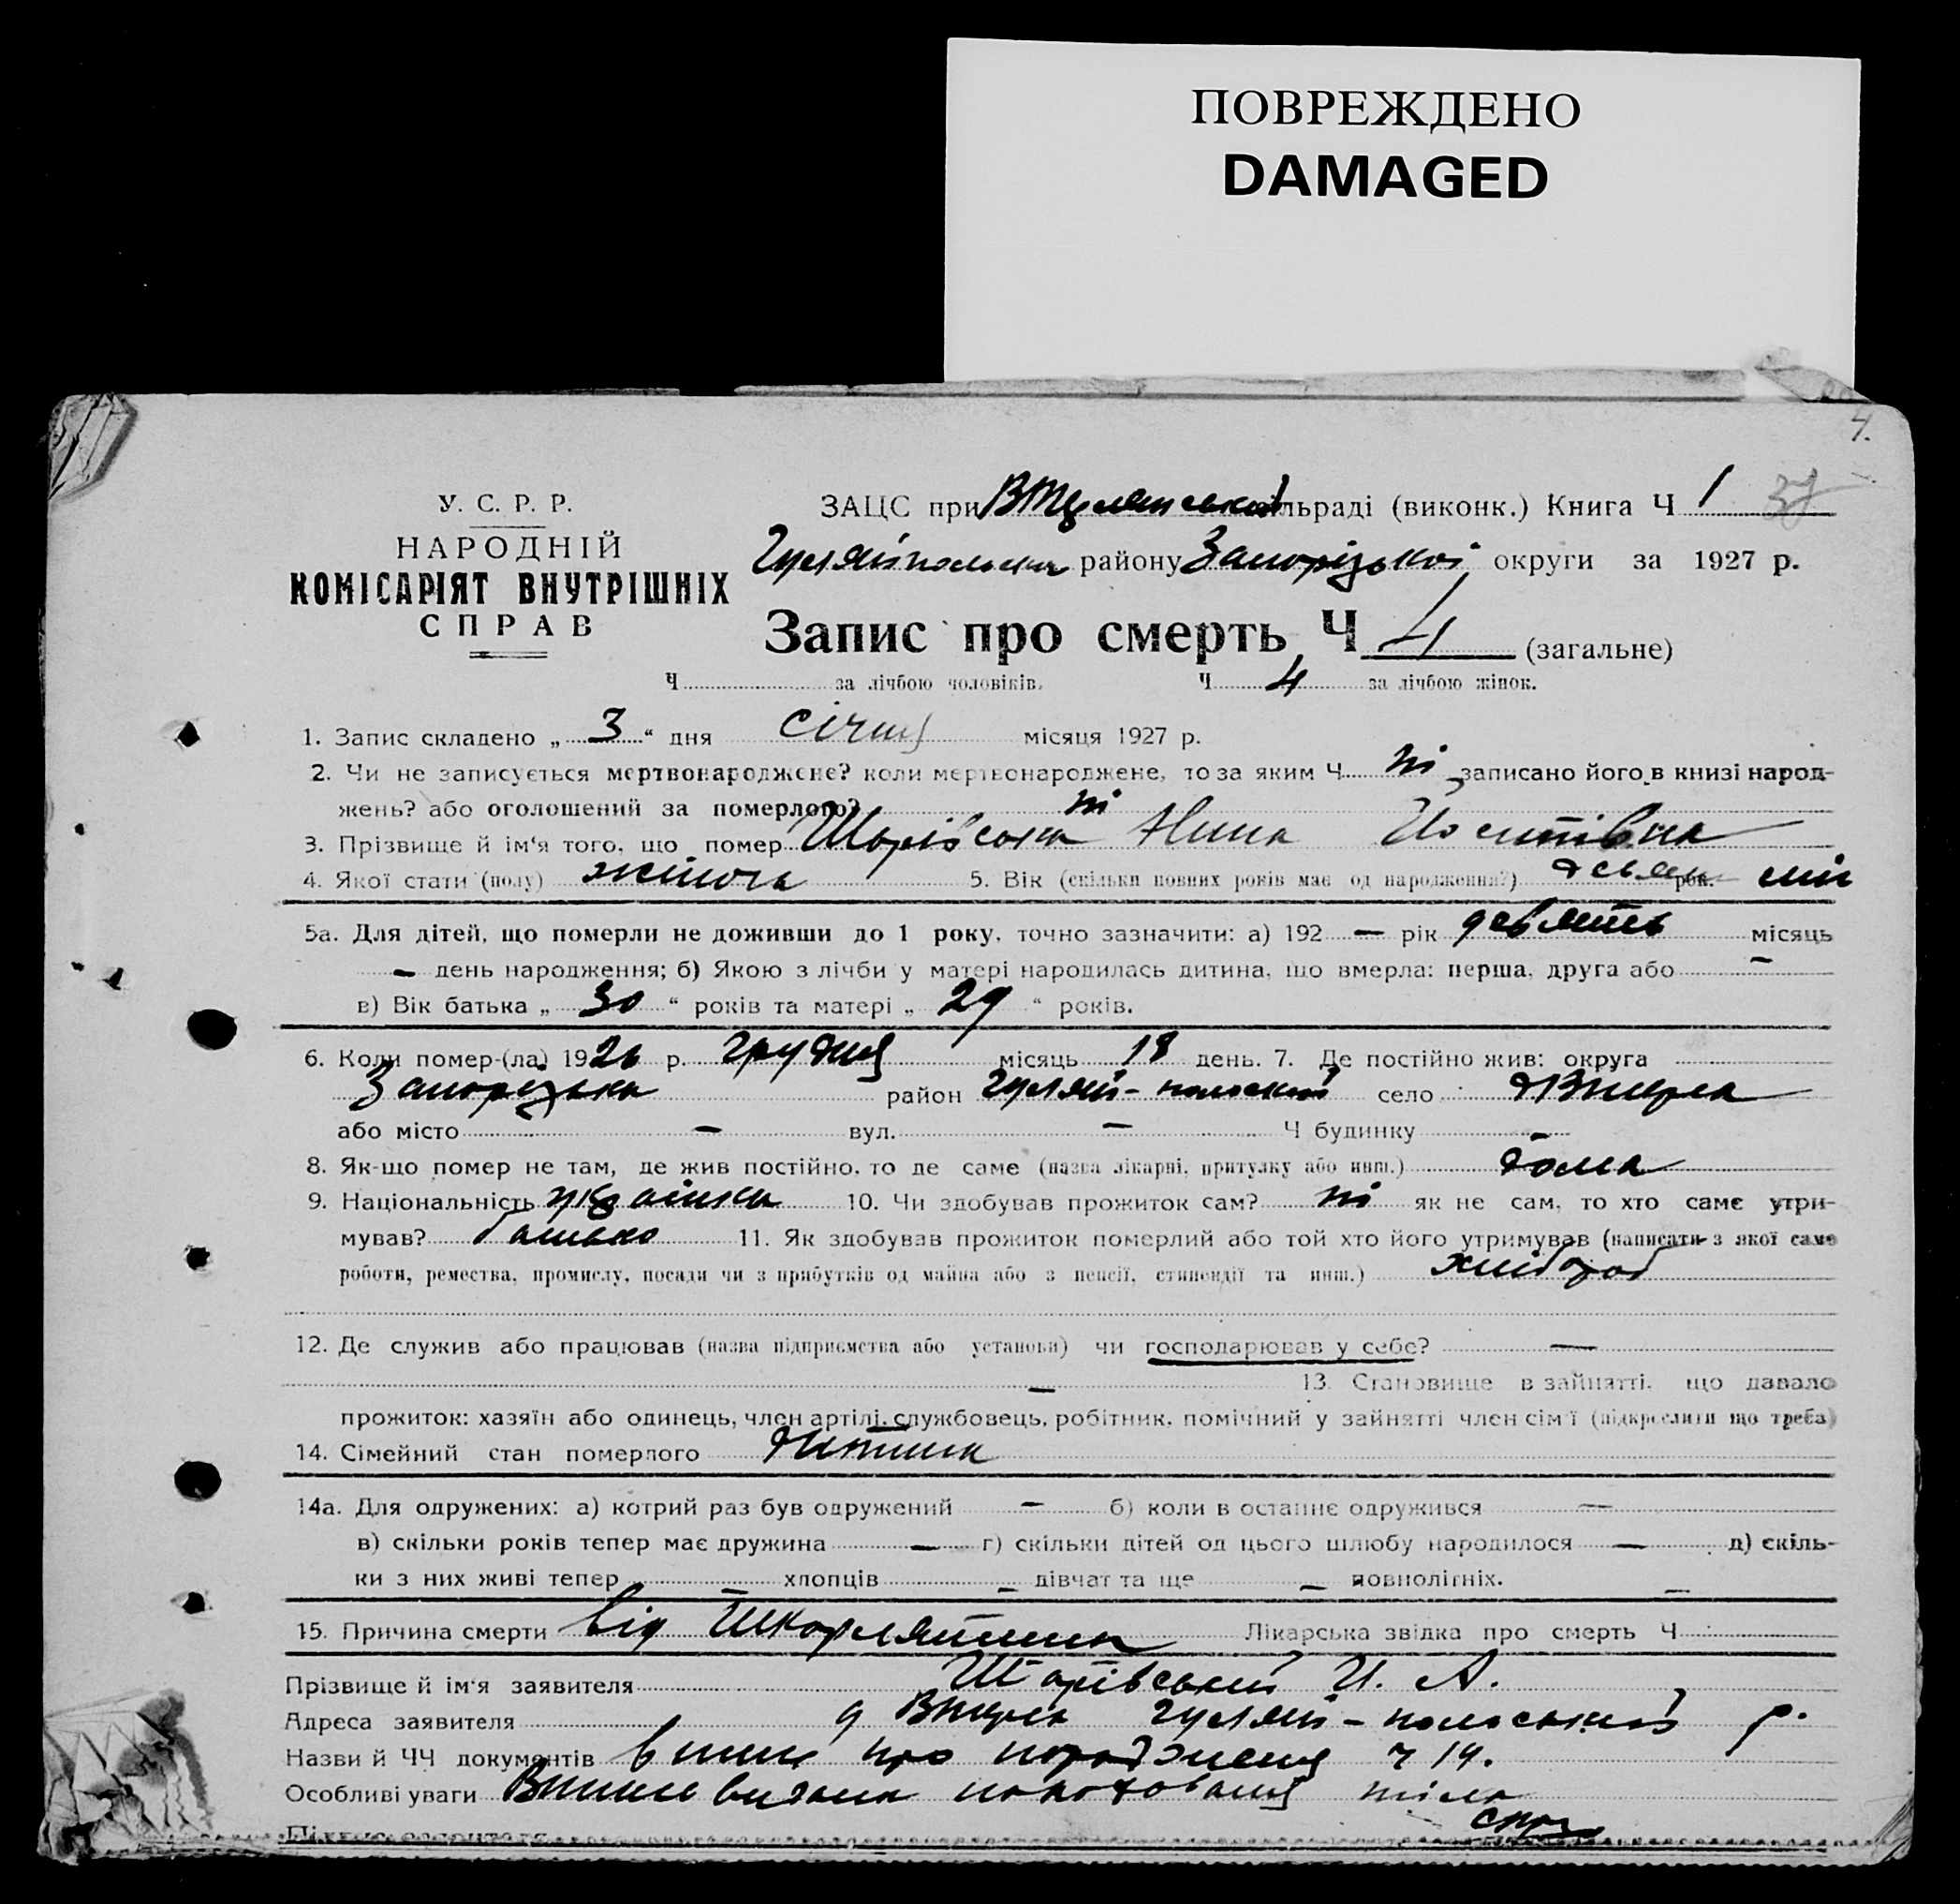 ПОВРЕЖДЕНО
DAMAGED
4.
У. С. Р. Р.
НАРОДНІЙ
КОМІСАРІЯТ ВНУТРІШНІХ
СПРАВ
ЗАЦС при сільраді (виконк.) Книга Ч 1 37
Гуляйпольськ району Запорізької округи за 1927 р.
Запис про смерть Ч 4 (загальне)
Ч за лічбою чоловіків. Ч 4 за лічбою жінок.
1. Запис складено „ 3 “ дня січня місяця 1927 р.
2. Чи не записується мертвонароджене? коли мертвонароджене, то за яким Ч ні записано його в книзі народ-
жень? або оголошений за померлого? ні
3. Прізвище й ім'я того, що помер Шарівська Нина
4. Якої стати (полу) жіноча 5. Вік (скільки повних років має од народження?) рок.
5а. Для дітей, що померли не доживши до 1 року, точно зазначити: а) 192 — рік девять місяць
— день народження; б) Якою з лічби у матері народилась дитина, що вмерла: перша, друга або —
в) Вік батька „ 30 “ років та матері „ 29 “ років.
6. Коли помер-(ла) 1926 р. грудня місяць 18 день. 7. Де постійно жив: округа
Запорізька район Гуляй-польский село
або місто — вул. — Ч будинку —
8. Як-що помер не там, де жив постійно, то де саме (назва лікарні, притулку або инш.) дома
9. Національність українка 10. Чи здобував прожиток сам? ні як не сам, то хто саме утри-
мував? батько 11. Як здобував прожиток померлий або той хто його утримував (написати з якої саме
роботи, ремества, промислу, посади чи з прибутків од майна або з пенсії, стипендії та инш.) хлібороб
12. Де служив або працював (назва підприємства або установи) чи господарював у себе? —
— 13. Становище в зайнятті, що давало
прожиток: хазяїн або одинець, член артілі, службовець, робітник, помічний у зайнятті член сім'ї (підкреслити що треба)
14. Сімейний стан померлого дитина
14а. Для одружених: а) котрий раз був одружений — б) коли в останнє одружився —
в) скільки років тепер має дружина — г) скільки дітей од цього шлюбу народилося — д) скіль-
ки з них живі тепер — хлопців — дівчат та ще — повнолітніх. —
15. Причина смерти від Шкарлятини Лікарська звідка про смерть Ч
Прізвище й ім'я заявителя Шарівський И. А.
Адреса заявителя Гуляй-польський р.
Назви й ЧЧ документів про народження ч 14.
Особливі уваги видана поховання тіла
Підпис заявителя